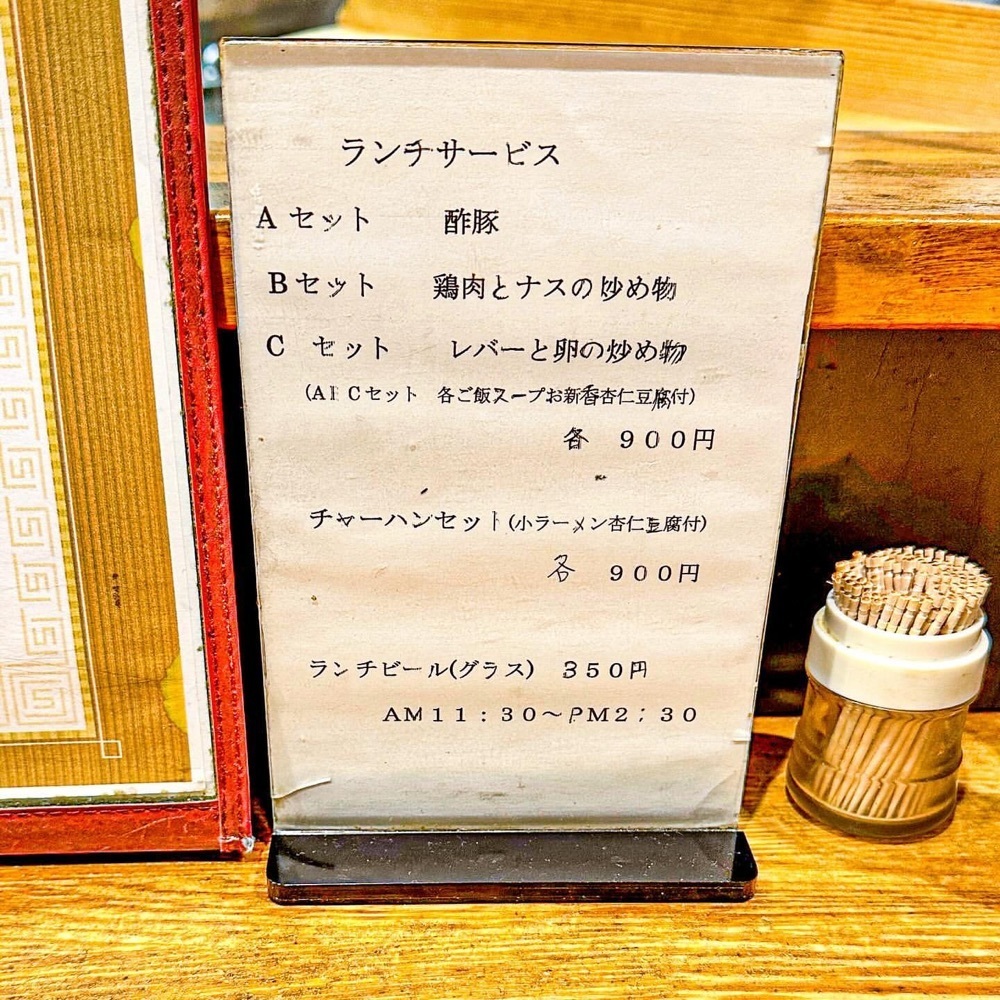 ランチサービス
Aセット 酢豚
Bセット 鶏肉とナスの炒め物
C セット レバーと卵の炒め物
(ABCセット 各ご飯スープお新香杏仁豆腐付)
各 900円
チャーハンセット(小ラーメン杏仁豆腐付)
各 900円
ランチビール(グラス) 350円
AM11:30～PM2:30